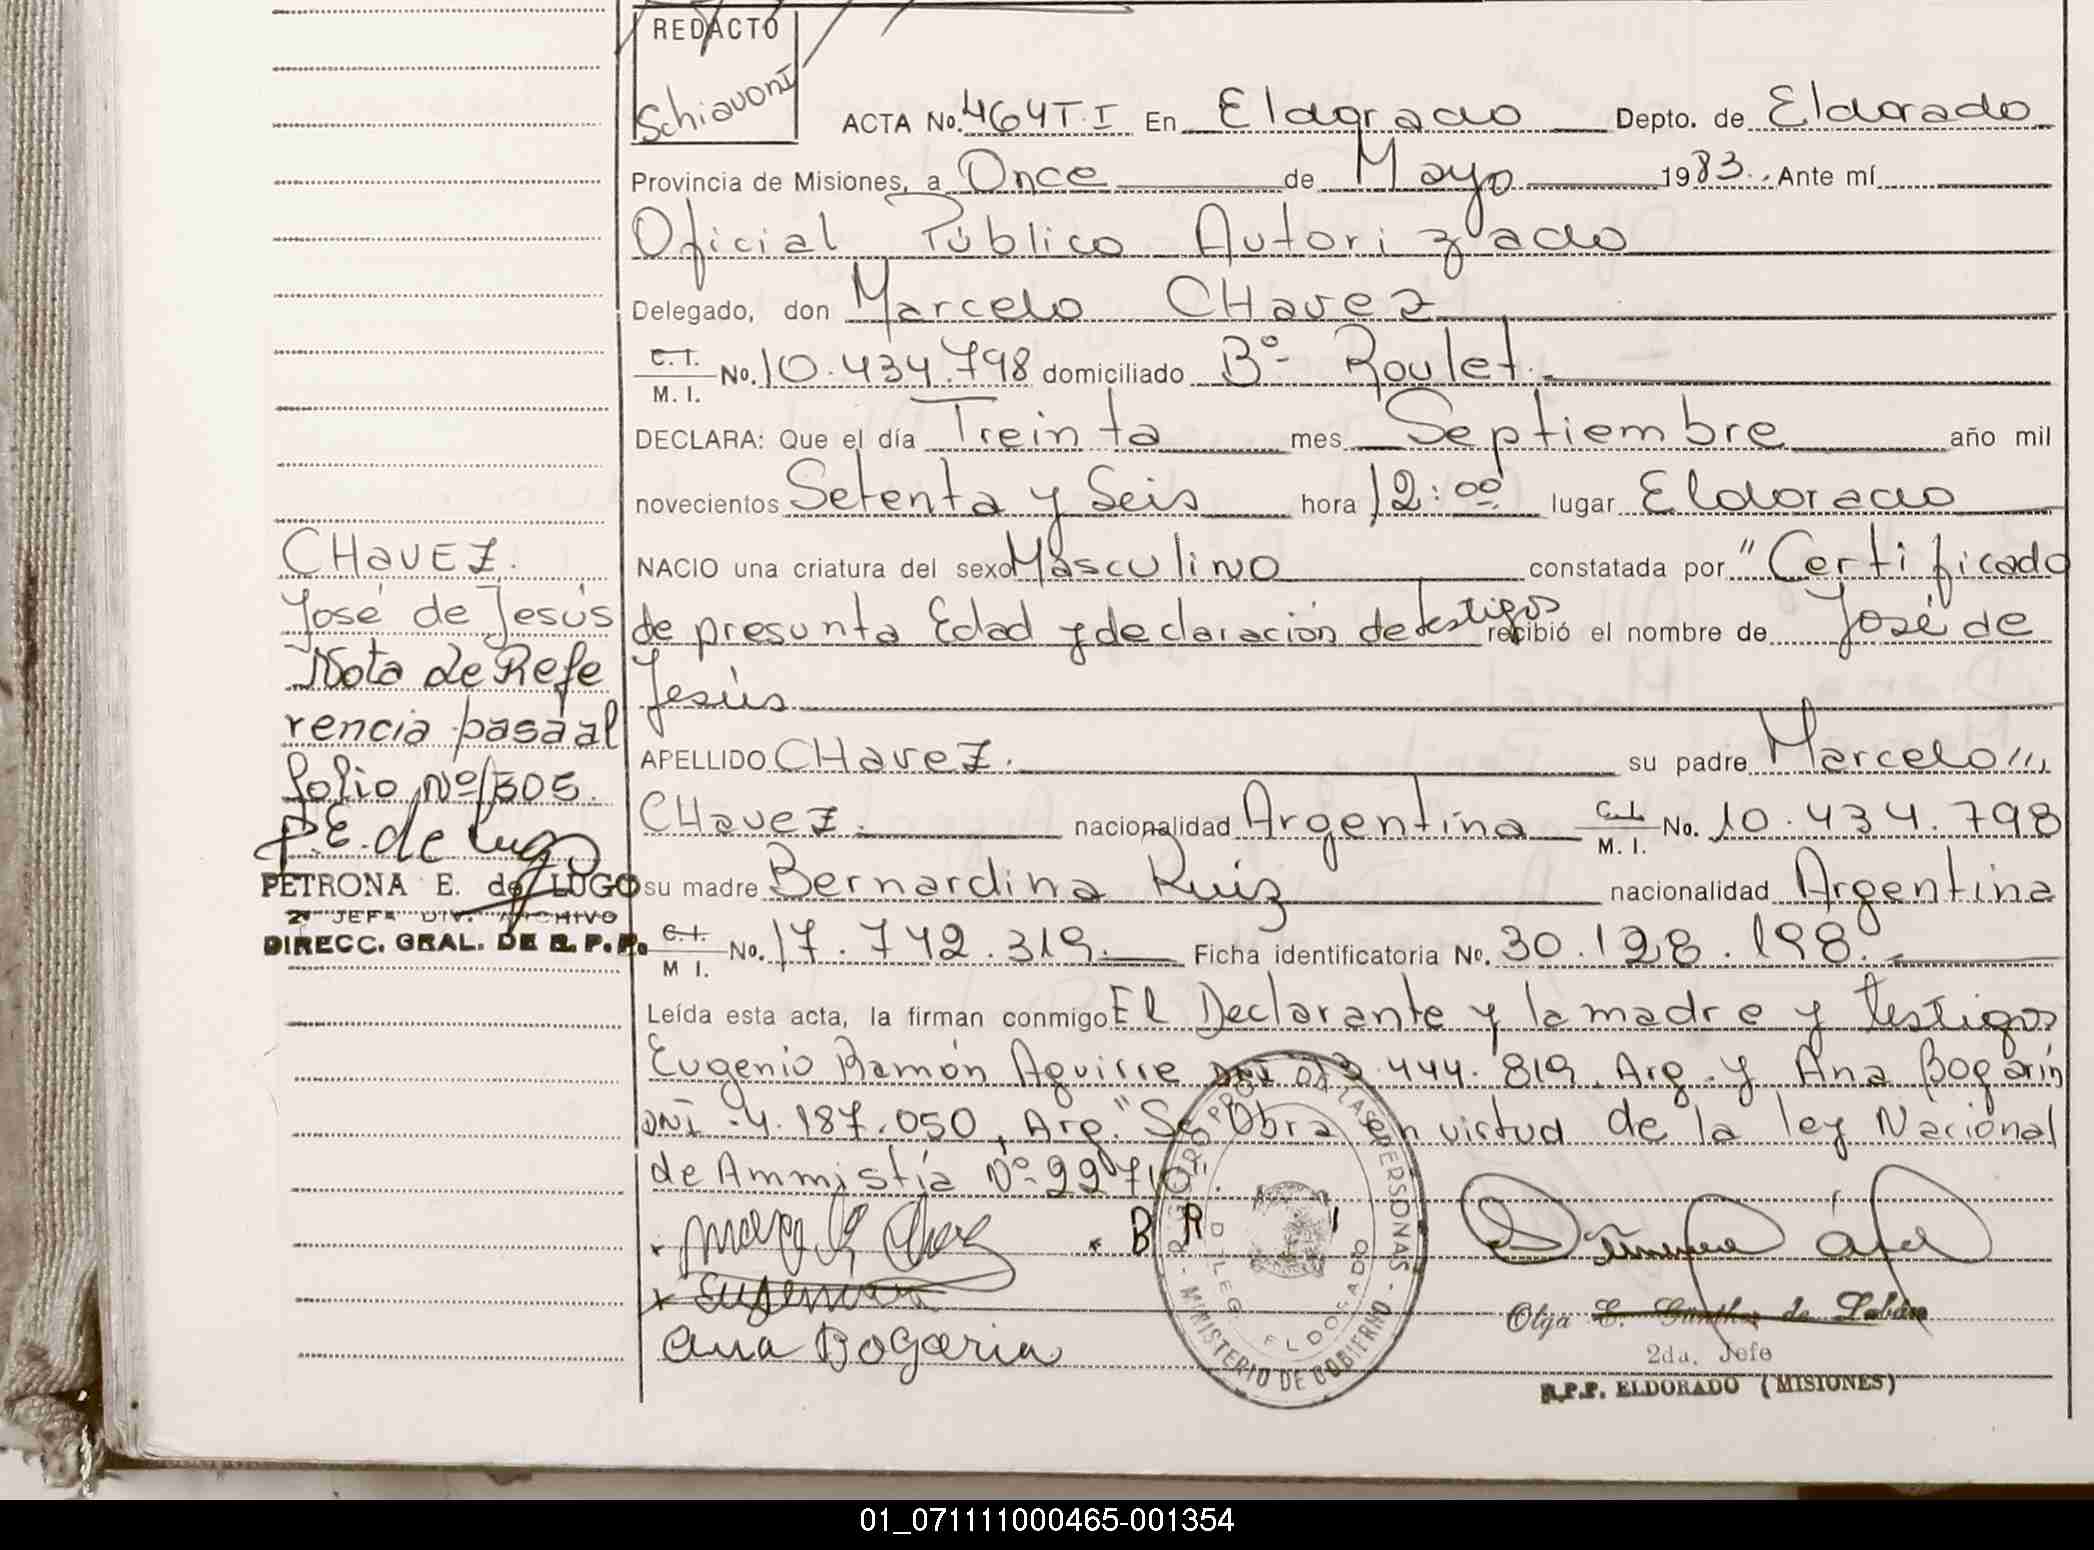 REDACTO
Schiavoni
ACTA No. 464 T.I En Eldorado Depto. de Eldorado
Provincia de Misiones, a Once de Mayo 1983. Ante mí
Oficial Público Autorizado
Delegado, don Marcelo CHavez
C.I. M. I. No. 10.434.798 domiciliado Bº Roulet.
DECLARA: Que el día Treinta mes Septiembre año mil
novecientos Setenta y Seis hora 12:00 lugar Eldorado
NACIO una criatura del sexo Masculino constatada por "Certificado
de presunta Edad y declaración de testigos recibió el nombre de José de
Jesús
APELLIDO CHavez. su padre Marcelo
CHavez. nacionalidad Argentina C.I. M. I. No. 10.434.798
su madre Bernardina Ruiz nacionalidad Argentina
C.I. M I. No. 17.742.319. Ficha identificatoria No. 30.128.198.
Leída esta acta, la firman conmigo El Declarante y la madre y testigos
Eugenio Ramón Aguirre DNI 13.444.819. Arg. y Ana Bogarín
DNI .4.187.050, Arg. "Se Obra en virtud de la ley Nacional
de Ammistía Nº 22710".
B R
Ana Bogarin
CHavez.
José de Jesús
Nota de Refe
rencia pasa al
folio Nº 305.
P.E. de Lugo
PETRONA E. de LUGO
2ª JEFA DIV. ARCHIVO
DIRECC. GRAL. DE R. P. P.
REGISTRO PROV. DE LAS PERSONAS
MINISTERIO DE GOBIERNO
DELEG. ELDORADO
Olga E. Günther de Labán
2da. Jefe
R.P.P. ELDORADO (MISIONES)
01_071111000465-001354